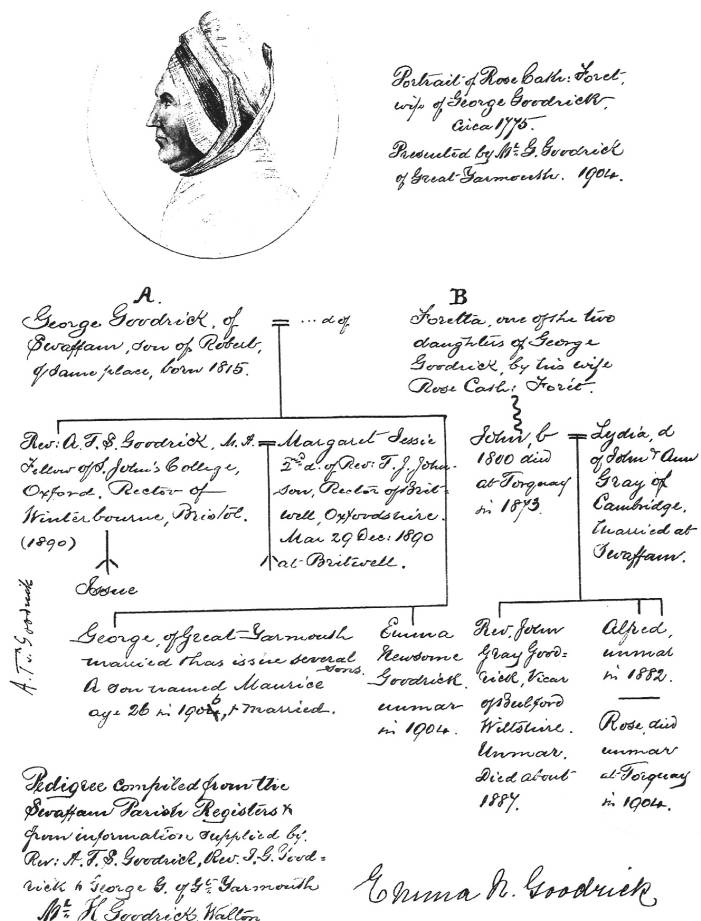 Portrait of Rose Cath: Foret,
wife of George Goodrick,
Circa 1775.
Presented by Mr. G. Goodrick
of Great Yarmouth. 1904.
A.
George Goodrick, of
Swaffam, son of Robert,
of same place, born 1815.
= ... d of
B
Foretta, one of the two
daughters of George
Goodrick, by his wife
Rose Cath: Forét.
Rev: A. T. S. Goodrick, M. A.
Fellow of S. John's College,
Oxford. Rector of
Winterbourne, Bristol.
(1890)
Issue
= Margaret Jessie
2nd d. of Rev: F. J. John-
son, Rector of Brit-
well, Oxfordshire.
Mar 29 Dec: 1890
at Britwell.
John, b
1800 died
at Torquay
in 1873.
= Lydia, d
of John & Ann
Gray of
Cambridge.
Married at
Swaffam.
A. T. S. Goodrick
George, of Great Yarmouth
married & has issue several
sons.
A son named Maurice
age 26 in 1906, & married.
Emma
Newsome
Goodrick.
unmar
in 1904.
Rev. John
Gray Good=
rick, Vicar
of Bulford
Wiltshire.
Unmar.
Died about
1887.
Alfred,
unmar
in 1882.
Rose, died
unmar
at Torquay
in 1904.
Pedigree compiled from the
Swaffam Parish Registers &
from information supplied by
Rev: A. T. S. Goodrick, Rev. J. G. Good=
rick & George G. of Gt. Yarmouth
Mr. H Goodrick Walton
Emma N. Goodrick